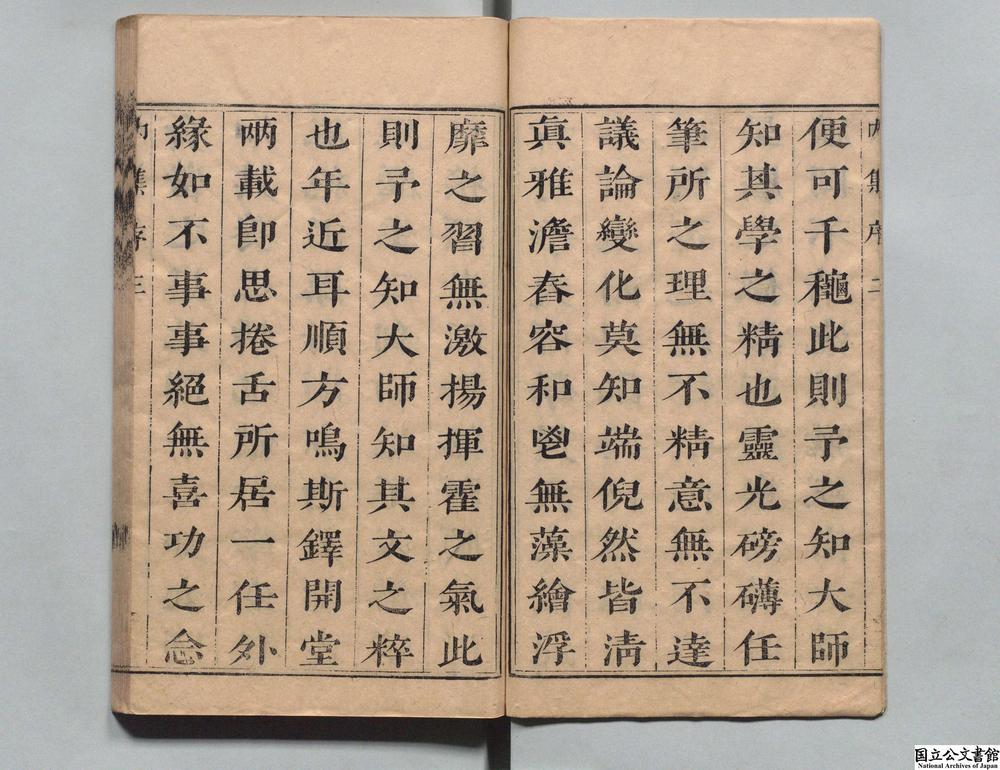 内集序 二
便可千穐此則予之知大師
知其學之精也靈光磅礴任
筆所之理無不精意無不達
議論變化莫知端倪然皆淸
眞雅澹舂容和鬯無藻繪浮
靡之習無激揚揮霍之氣此
則予之知大師知其文之粹
也年近耳順方鳴斯鐸開堂
兩載卽思捲舌所居一任外
緣如不事事絕無喜功之念
內集序 三
国立公文書館
National Archives of Japan